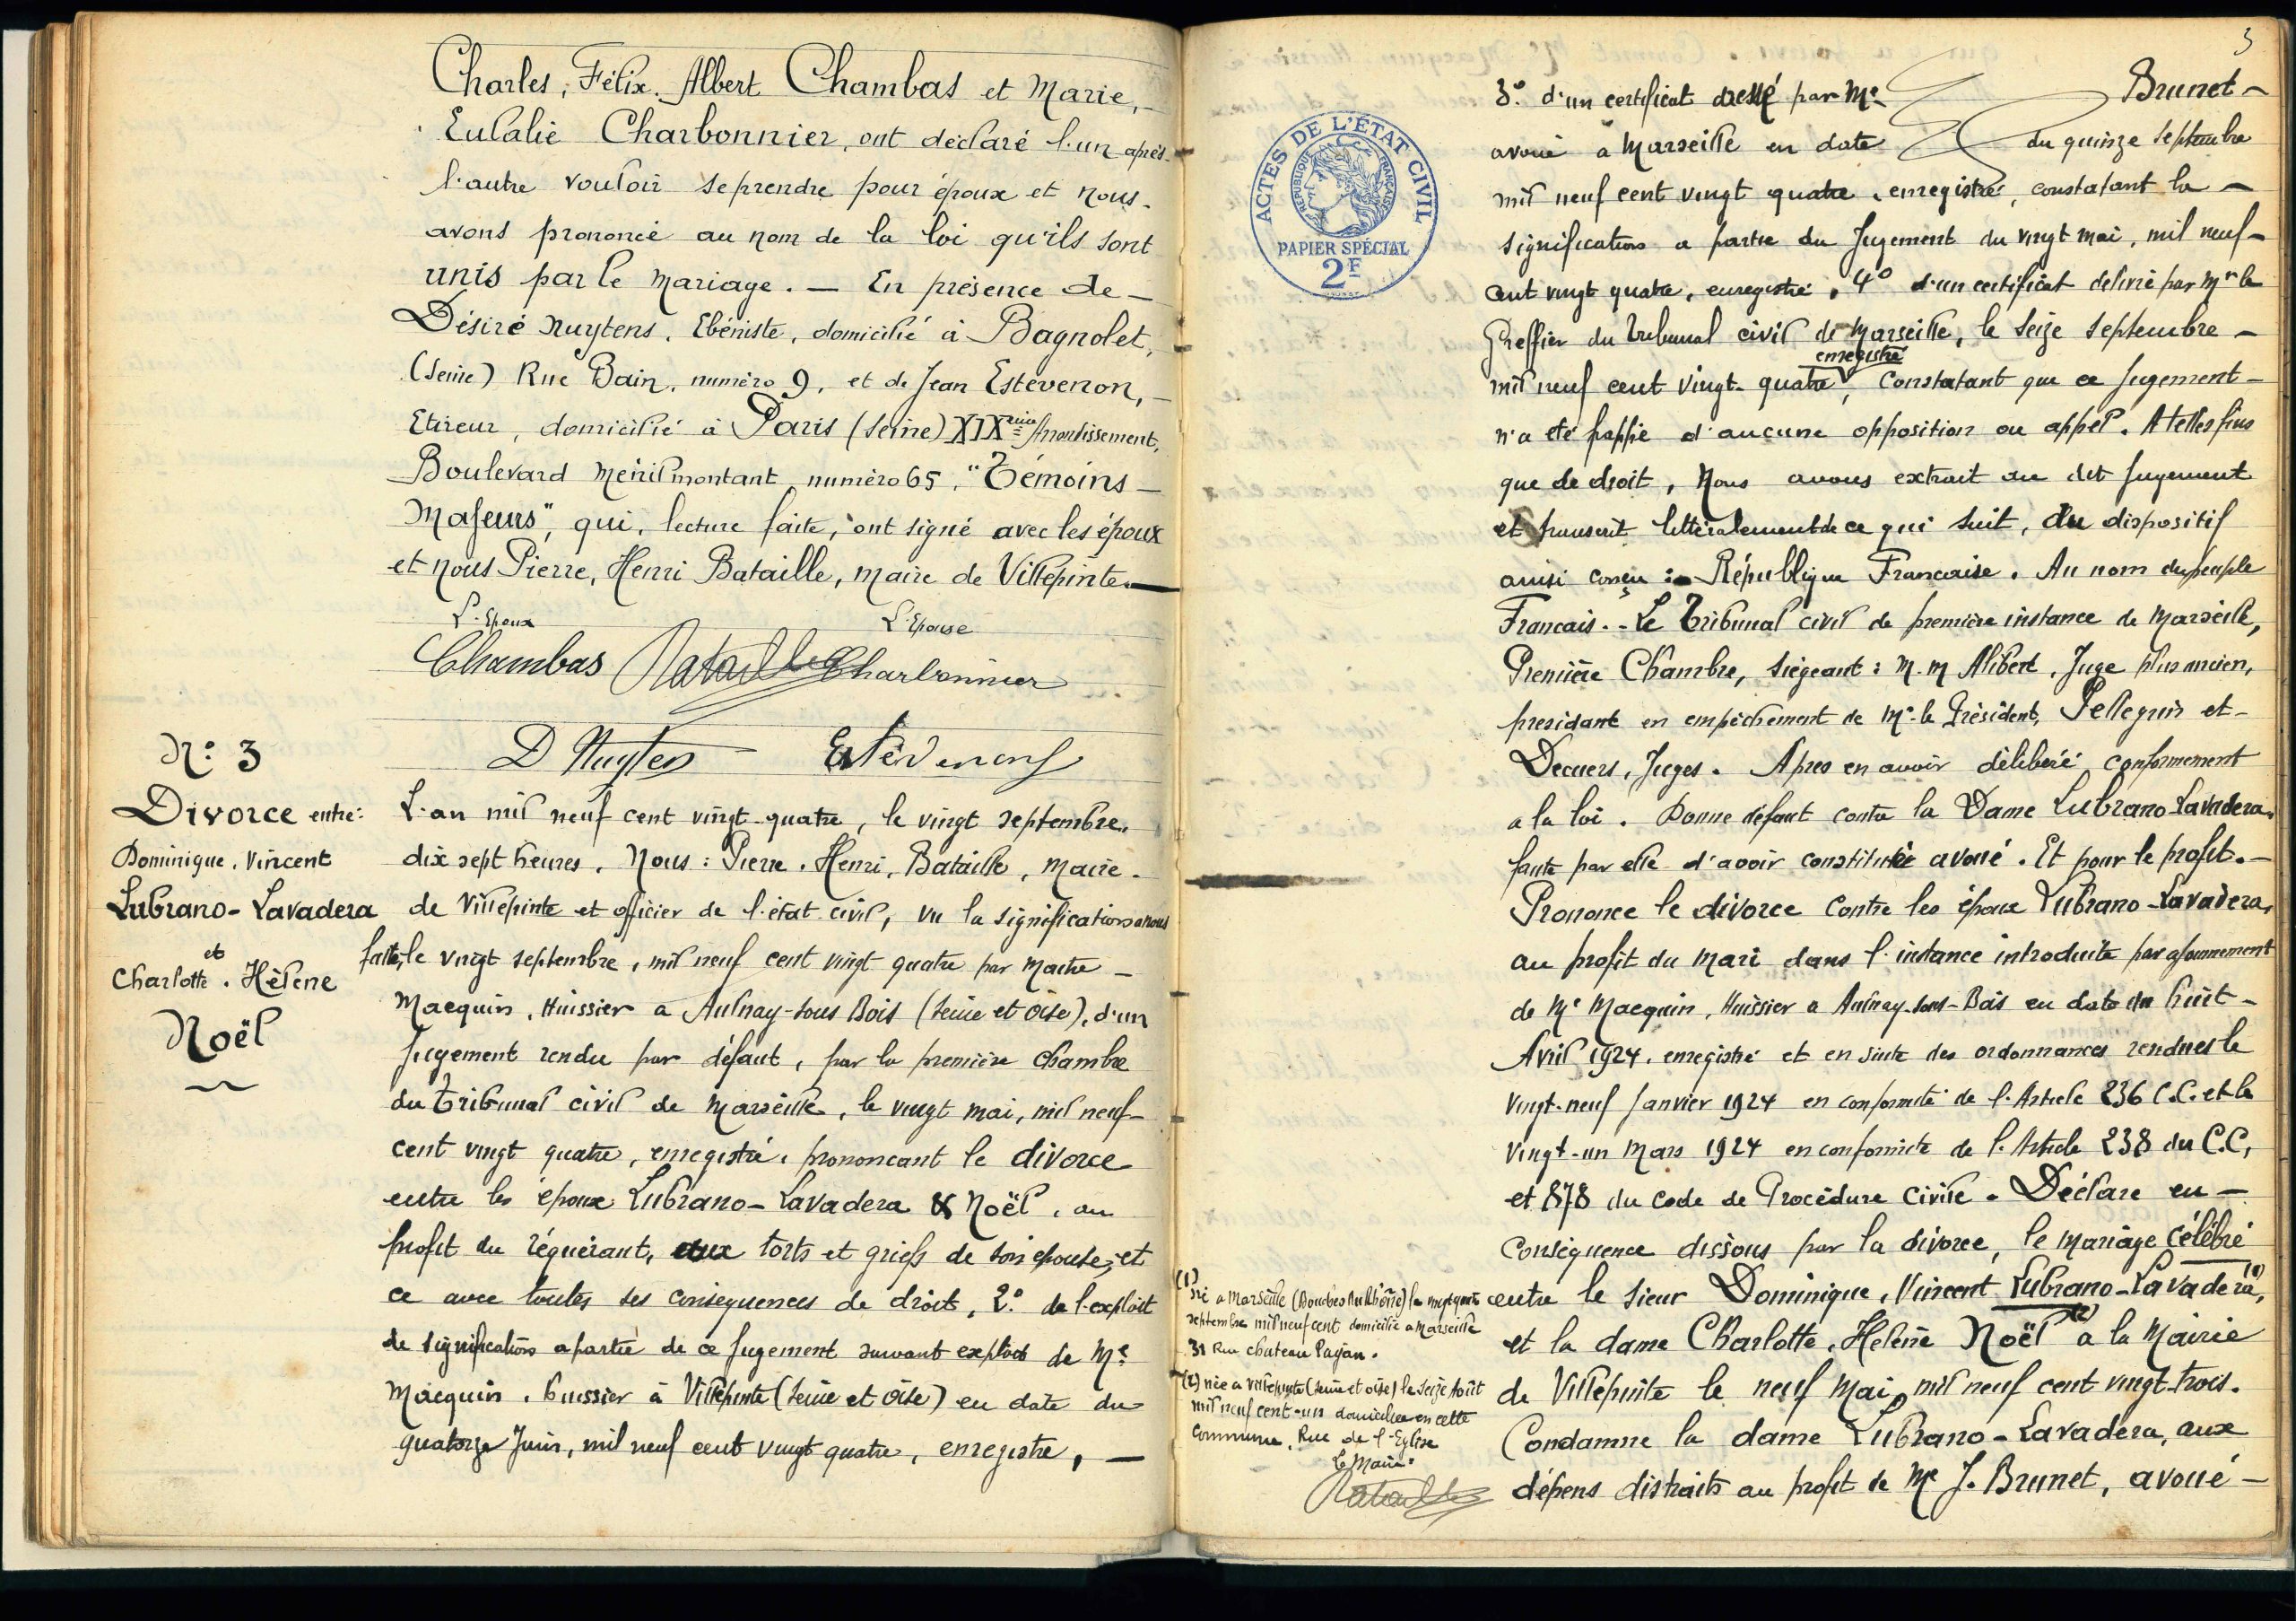 Charles, Félix, Albert Chambas et Marie,
Eulalie Charbonnier, ont déclaré l'un après
l'autre vouloir se prendre pour époux et nous
avons prononcé au nom de la loi qu'ils sont
unis par le mariage. — En présence de —
Désiré Nuytens, Ebéniste, domicilié à Bagnolet,
(Seine) Rue Bain, numéro 9, et de Jean Estevenon,
Etireur, domicilié à Paris (Seine) XIXème Arrondissement,
Boulevard Ménilmontant, numéro 65, "Témoins —
Majeurs", qui, lecture faite, ont signé avec les époux
et nous Pierre, Henri Bataille, maire de Villepinte. —
L'Epoux
L'Epouse
Chambas Bataille Charbonnier
D Nuytens Estévenon
N° 3
Divorce entre:
Dominique, Vincent
Lubrano-Lavadera
et
Charlotte, Hélène
Noël
L'an mil neuf cent vingt-quatre, le vingt septembre,
dix sept heures. Nous: Pierre, Henri, Bataille, maire
de Villepinte et officier de l'état civil, vu la signification a nous
faite, le vingt septembre, mil neuf cent vingt quatre par Maitre —
Macquin, Huissier a Aulnay-sous Bois (Seine et Oise), d'un
Jugement rendu par défaut, par la première Chambre
du Tribunal civil de Marseille, le vingt mai, mil neuf-
cent vingt quatre, enregistré, prononcant le divorce
entre les époux Lubrano-Lavadera & Noël, au
profit du réquérant, aux torts et griefs de son epouse, et
ce avec toutes ses conséquences de droit, 2° de l'exploit
de signification a partie de ce Jugement suivant exploit de Me
Macquin, huissier à Villepinte (Seine et Oise) en date du
quatorze Juin, mil neuf cent vingt quatre, enregistré, —
3
ACTES DE L'ÉTAT CIVIL
RÉPUBLIQUE FRANÇAISE
PAPIER SPÉCIAL
2F
3° d'un certificat dressé par Me Brunet —
avoué a Marseille en date du quinze septembre
mil neuf cent vingt quatre, enregistré, constatant la —
signification a partie du Jugement du vingt mai, mil neuf-
cent vingt quatre, enregistré, 4° d'un certificat délivré par Mr le
Greffier du Tribunal civil de Marseille, le seize septembre —
enregistré
mil neuf cent vingt-quatre, Constatant que ce Jugement —
n'a été frappé d'aucune opposition ou appel. A telles fins
que de droit, Nous avons extrait au dit Jugement
et transcrit littéralement de ce qui suit, du dispositif
ainsi conçu: — République Francaise. Au nom du peuple
Francais. - Le Tribunal civil de première instance de Marseille,
Première Chambre, siégeant: M.M Alibert, Juge plus ancien,
présidant en empêchement de Mr le Président, Pellegrin et —
Decuers, Juges. Apres en avoir délibéré conformement
a la loi. Donne défaut contre la Dame Lubrano-Lavadera,
faute par elle d'avoir constitué avoué. Et pour le profit. —
Prononce le divorce contre les époux Lubrano-Lavadera,
au profit du mari dans l'instance introduite par ajournement
de Me Macquin, Huissier a Aulnay-sous-Bois en date du huit —
Avril 1924, enregistré et en suite des ordonnances rendues le
vingt-neuf Janvier 1924 en conformité de l'Article 236 C.C. et le
vingt-un Mars 1924 en conformité de l'Article 238 du C.C,
et 878 du code de Procédure Civile. Déclare en —
conséquence dissous par la divorce, le mariage célébré
entre le sieur Dominique, Vincent Lubrano-Lavadera (1),
et la dame Charlotte, Hélène Noël (2) a la Mairie
de Villepinte le neuf Mai, mil neuf cent vingt-trois.
Condamne la dame Lubrano-Lavadera, aux
dépens distraits au profit de Me J. Brunet, avoué —
(1)
né a Marseille (Bouches du Rhône) le vingt quatre
septembre mil neuf cent domicilié a Marseille
31 Rue chateau Payan.
(2) née a Villepinte (Seine et oise) le seize Août
mil neuf cent-un domiciliée en cette
Commune, Rue de l'Eglise
Le Maire:
Bataille